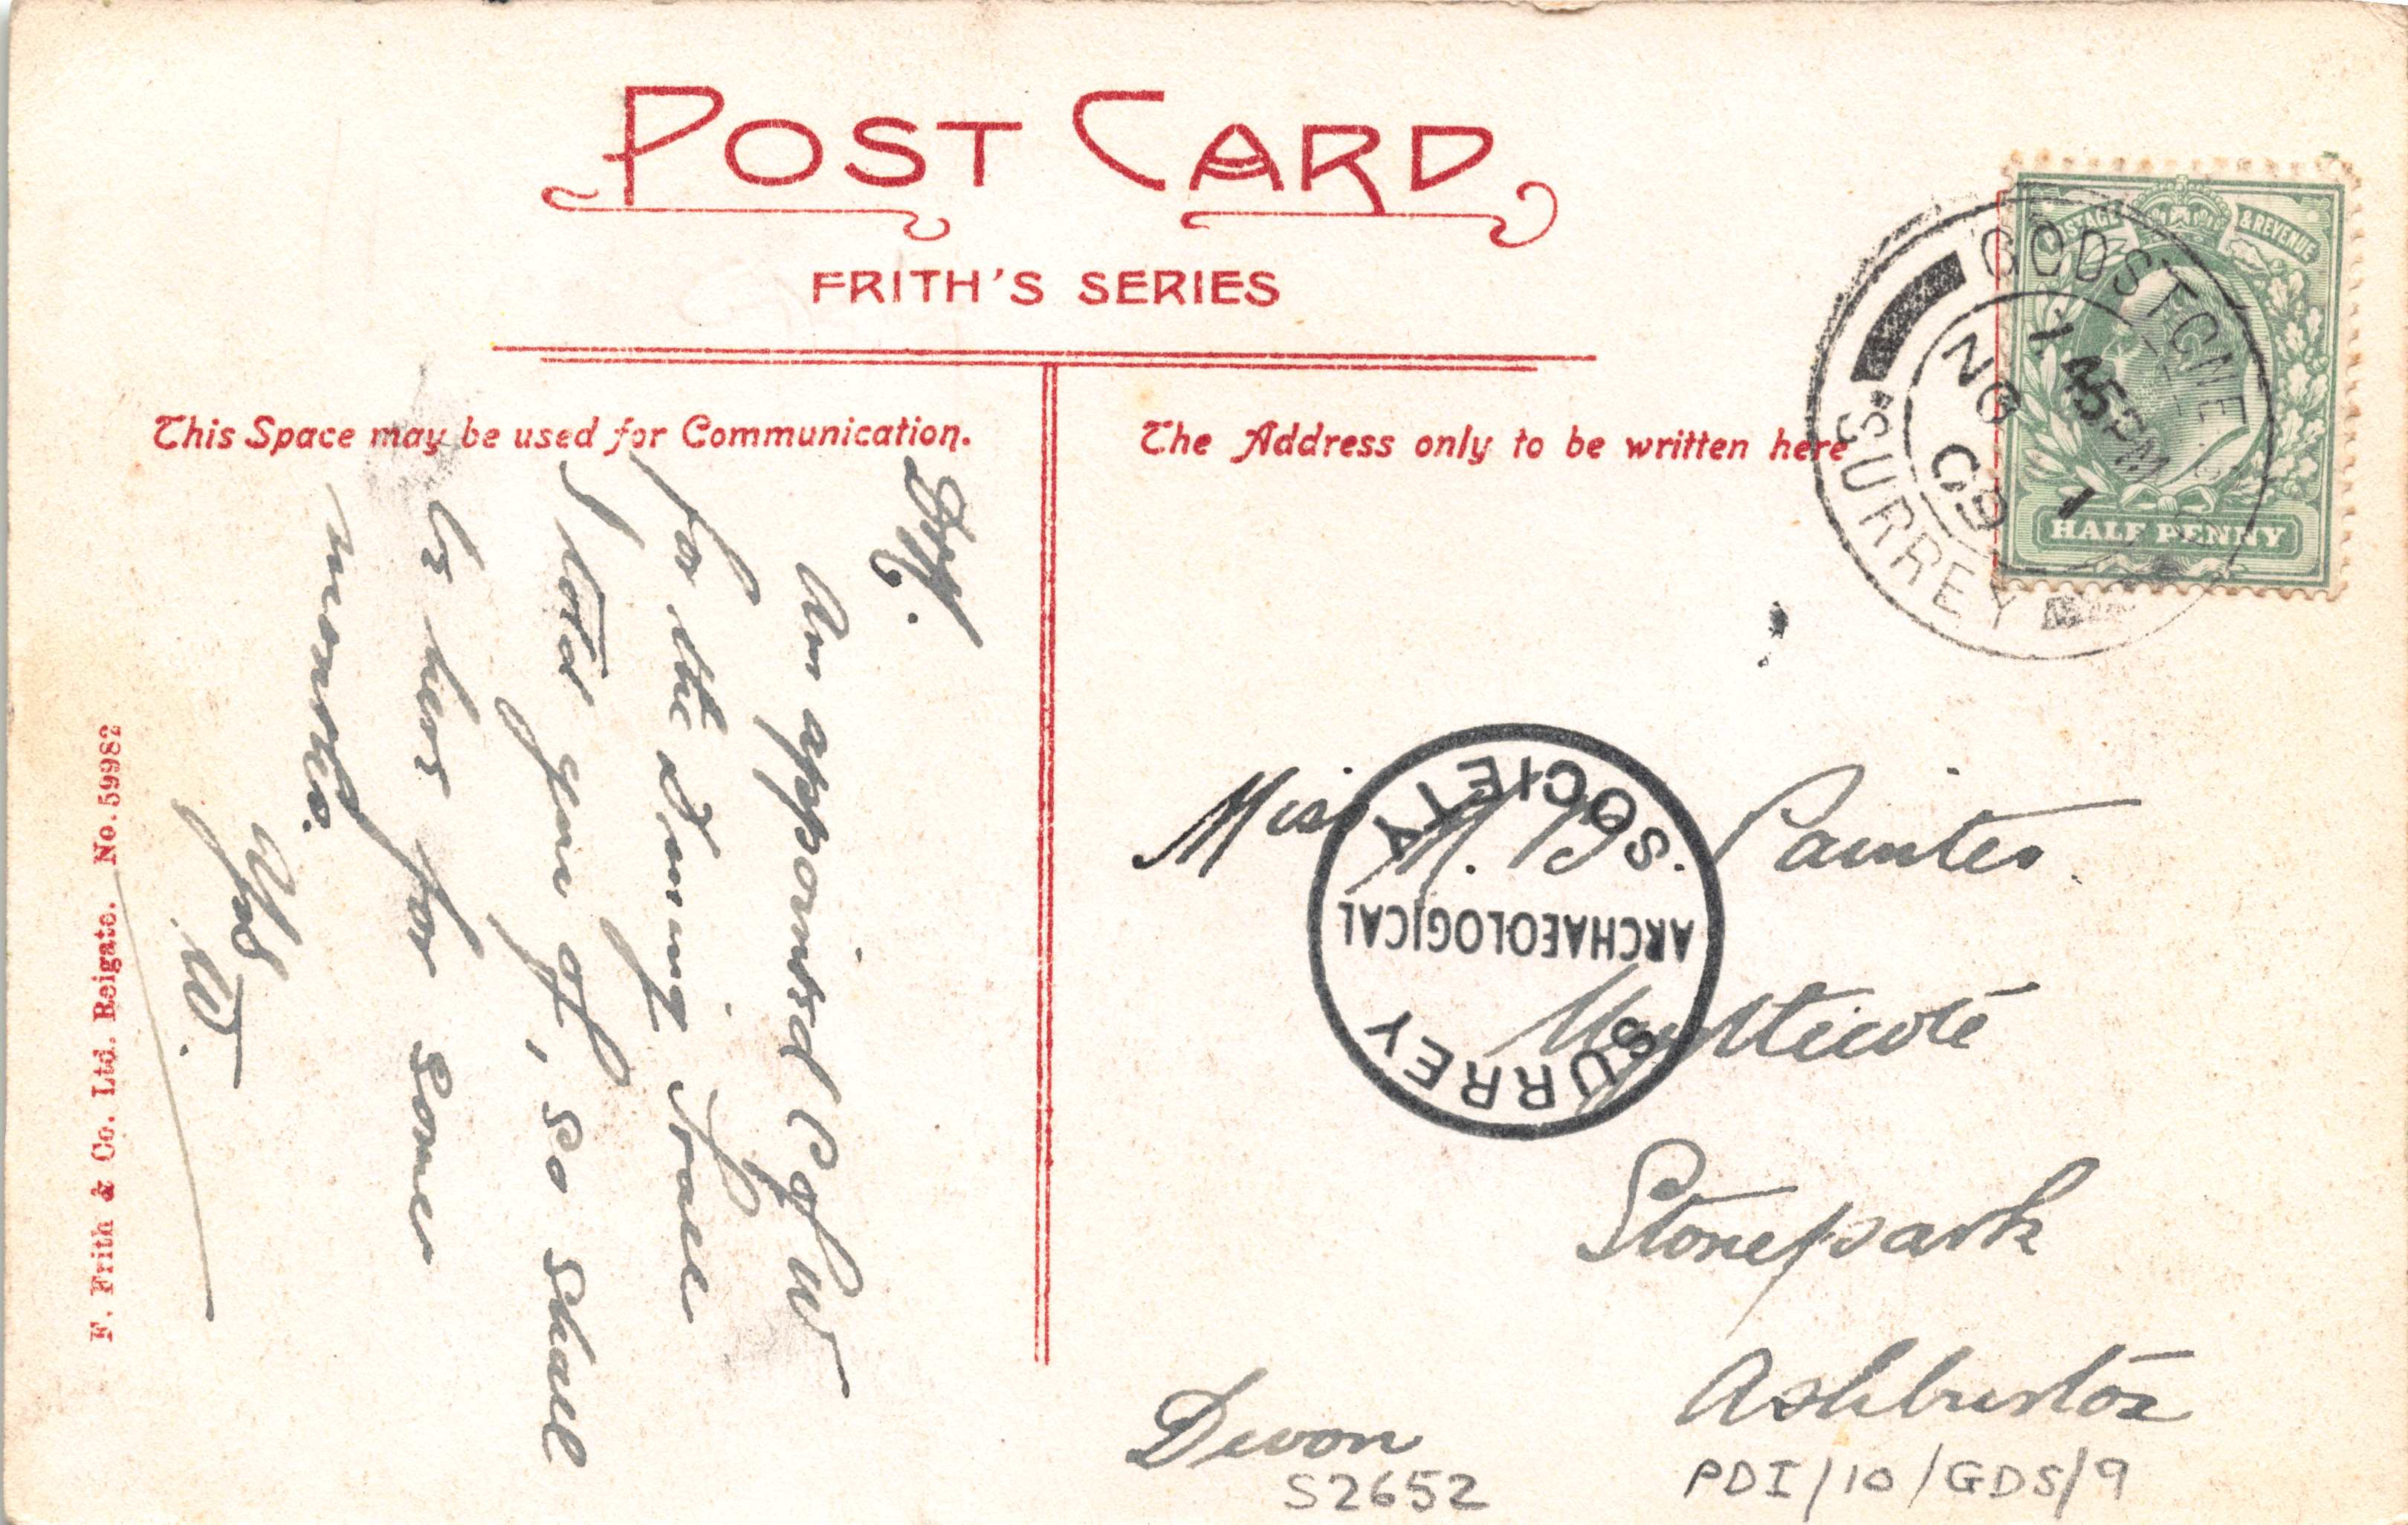 POST CARD
FRITH'S SERIES
This Space may be used for Communication.
The Address only to be written here
POSTAGE & REVENUE
HALF PENNY
GODSTONE
7.45PM
NO 1
09
SURREY
Am appointed C of W
for the Dining Hall
I told you of, so shall
be here for some
months.
Yrs
W.
Miss M. Painter.
Stonepark
Ashburton
Devon
SURREY
ARCHAEOLOGICAL
SOCIETY
S2652
PDI/10/GDS/9
F. Frith & Co. Ltd. Reigate. No. 59982